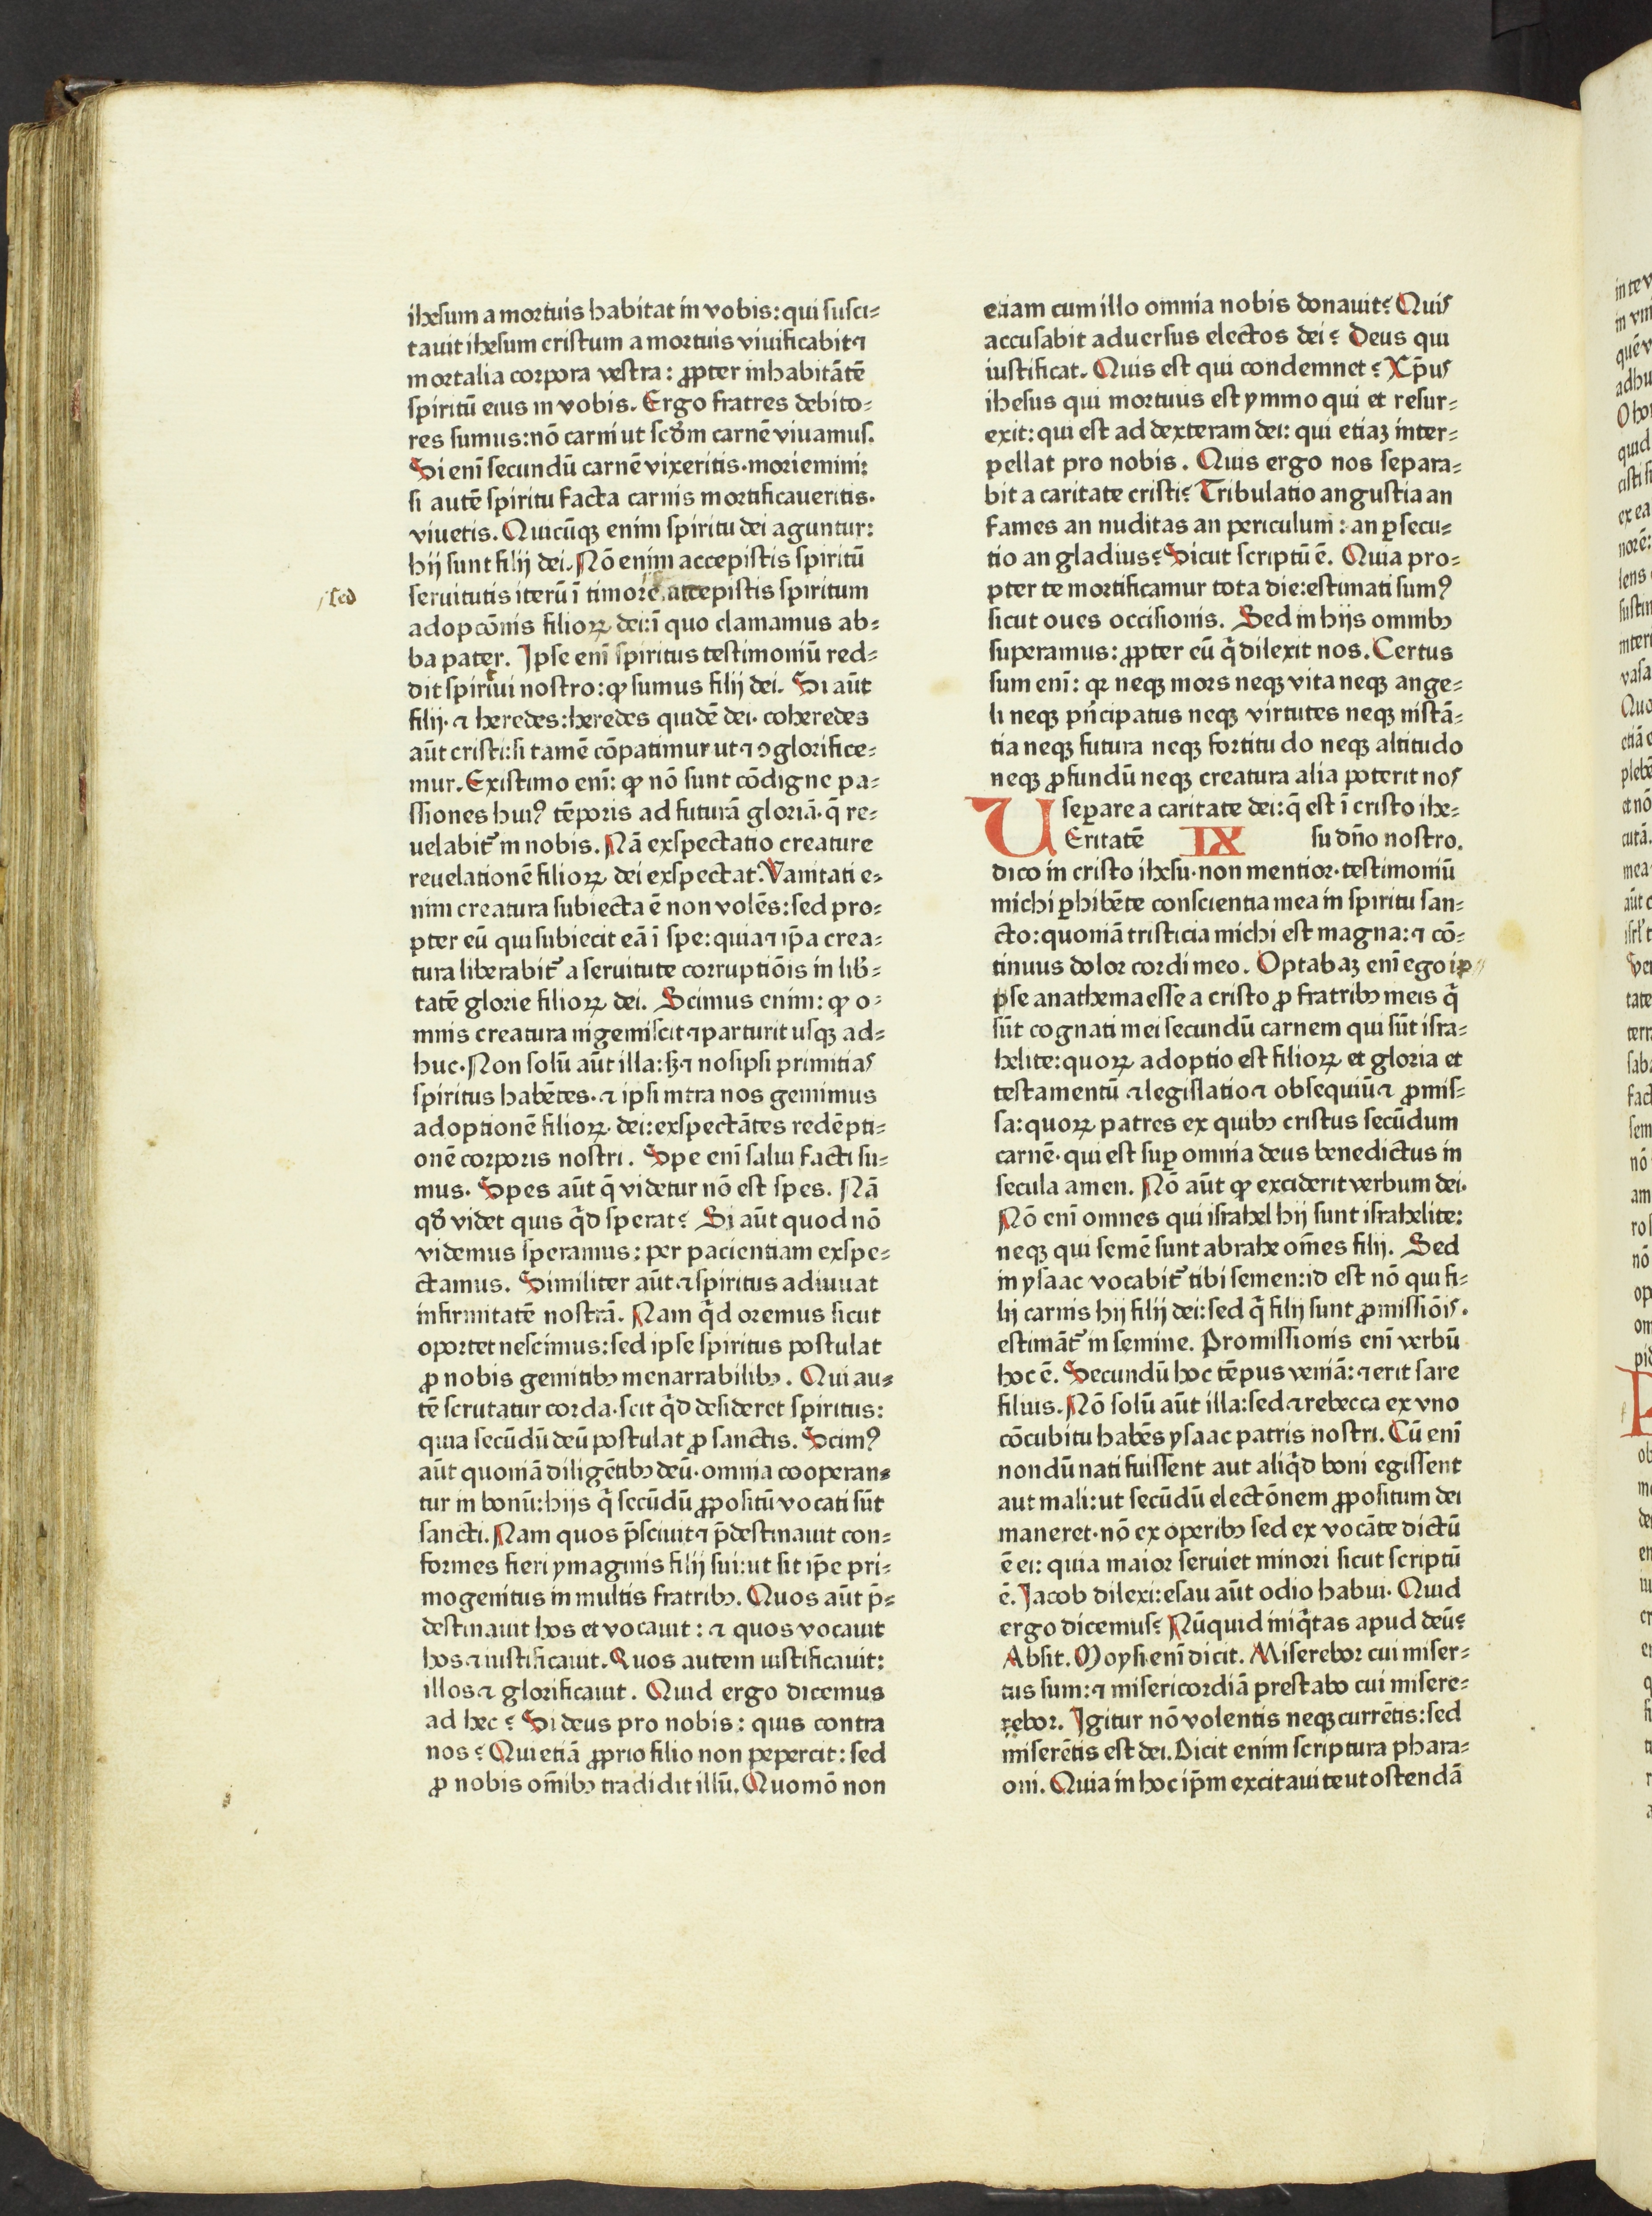 ihesum a mortuis habitat in vobis: qui susci⸗
tauit ihesum cristum a mortuis viuificabit ⁊
mortalia corpora vestra: ꝓpter inhabitātē
spiritū eius in vobis. Ergo fratres debito⸗
res sumus: nō carni ut scd̄m carnē viuamus.
Si eni̅ secundū carnē vixeritis· moriemini:
si autē spiritu facta carnis mortificaueritis·
viuetis. Quicūqꝫ enim spiritu dei aguntur:
hij sunt filij dei. Nō enim accepistis spiritū
sed
seruitutis iterū ī timore. accepistis spiritum
adopcōnis filioꝝ dei: ī quo clamamus ab⸗
ba pater. Ipse eni̅ spiritus testimoniū red⸗
dit spiritui nostro: ꝙ sumus filij dei. Si aūt
filij· ⁊ heredes: heredes quidē dei· coheredes
aūt cristi: si tamē cōpatimur ut ⁊ ꝯglorifice⸗
mur. Existimo eni̅: ꝙ nō sunt cōdigne pa⸗
ssiones huiꝰ tēporis ad futurā gloriā· q̄ re⸗
uelabit᷑ in nobis. Nā exspectatio creature
reuelationē filioꝝ dei exspectat. Vanitati e⸗
nim creatura subiecta ē non volēs: sed pro⸗
pter eū qui subiecit eā ī spe: quia ⁊ ip̄a crea⸗
tura liberabit᷑ a seruitute corruptiōis in lib̄⸗
tatē glorie filioꝝ dei. Scimus enim: ꝙ o⸗
mnis creatura ingemiscit ⁊ parturit usqꝫ ad⸗
huc. Non solū aūt illa: sꝫ ⁊ nos ipsi primitias
spiritus habētes· ⁊ ipsi intra nos gemimus
adoptionē filioꝝ dei: exspectātes redēpti⸗
onē corporis nostri. Spe eni̅ salui facti su⸗
mus. Spes aūt q̄ videtur nō est spes. Nā
qd̄ videt quis q̄d sperat? Si aūt quod nō
videmus speramus: per pacientiam exspe⸗
ctamus. Similiter aūt ⁊ spiritus adiuuat
infirmitatē nostrā. Nam q̄d oremus sicut
oportet nescimus: sed ipse spiritus postulat
ꝓ nobis gemitibꝫ inenarrabilibꝫ. Qui au⸗
tē scrutatur corda· scit q̄d desideret spiritus:
quia secūdū deū postulat ꝓ sanctis. Scimꝰ
aūt quoniā diligētibꝫ deū· omnia cooperan⸗
tur in bonū: hijs q̄ secūdū ꝓpositū vocati sūt
sancti. Nam quos p̄sciuit ⁊ p̄destinauit con⸗
formes fieri ymaginis filij sui: ut sit ip̄e pri⸗
mogenitus in multis fratribꝫ. Quos aūt p̄⸗
destinauit hos et vocauit: ⁊ quos vocauit
hos ⁊ iustificauit. Quos autem iustificauit:
illos ⁊ glorificauit. Quid ergo dicemus
ad hec? Si deus pro nobis: quis contra
nos? Qui etiā ꝓprio filio non pepercit: sed
ꝓ nobis om̄ibꝫ tradidit illū. Quomō non
etiam cum illo omnia nobis donauit? Quis
accusabit aduersus electos dei? Deus qui
iustificat. Quis est qui condemnet? Xp̄us
ihesus qui mortuus est ymmo qui et resur⸗
exit: qui est ad dexteram dei: qui etiaꝫ inter⸗
pellat pro nobis. Quis ergo nos separa⸗
bit a caritate cristi? Tribulatio angustia an
fames an nuditas an periculum: an ꝑsecu⸗
tio an gladius? Sicut scriptū ē. Quia pro⸗
pter te mortificamur tota die: estimati sumꝰ
sicut oues occisionis. Sed in hijs omnibꝫ
superamus: ꝓpter eū q̄ dilexit nos. Certus
sum eni̅: qꝛ neqꝫ mors neqꝫ vita neqꝫ ange⸗
li neqꝫ pn̄cipatus neqꝫ virtutes neqꝫ instā⸗
tia neqꝫ futura neqꝫ fortitudo neqꝫ altitudo
neqꝫ ꝓfundū neqꝫ creatura alia poterit nos
separe a caritate dei: q̄ est ī cristo ihe⸗
UEritatē IX su dn̄o nostro.
dico in cristo ihesu· non mentior· testimoniū
michi ꝑhibēte conscientia mea in spiritu san⸗
cto: quoniā tristicia michi est magna: ⁊ cō⸗
tinuus dolor cordi meo. Optabaꝫ eni̅ ego ip
pse anathema esse a cristo ꝓ fratribꝫ meis q̄
sūt cognati mei secundū carnem qui sūt isra⸗
helite: quoꝝ adoptio est filioꝝ et gloria et
testamentū ⁊ legislatio ⁊ obsequiū ⁊ ꝓmis⸗
sa: quoꝝ patres ex quibꝫ cristus secūdum
carnē· qui est suꝑ omnia deus benedictus in
secula amen. Nō aūt ꝙ exciderit verbum dei.
Nō eni̅ omnes qui israhel hij sunt israhelite:
neqꝫ qui semē sunt abrahe om̄es filij. Sed
in ysaac vocabit᷑ tibi semen: id est nō qui fi⸗
lij carnis hij filij dei: sed q̄ filij sunt ꝓmissiōis.
estimāt᷑ in semine. Promissionis eni̅ verbū
hoc ē. Secundū hoc tēpus veniā: ⁊ erit sare
filius. Nō solū aūt illa: sed ⁊ rebecca ex vno
cōcubitu habēs ysaac patris nostri. Cū eni̅
nondū nati fuissent aut aliq̄d boni egissent
aut mali: ut secūdū electōnem ꝓpositum dei
maneret· nō ex operibꝫ sed ex vocāte dictū
ē ei: quia maior seruiet minori sicut scriptū
ē. Iacob dilexi: esau aūt odio habui. Quid
ergo dicemus? Nūquid iniq̄tas apud deū?
Absit. Moysi eni̅ dicit. Miserebor cui miser⸗
tus sum: ⁊ misericordiā prestabo cui misere⸗
rebor. Igitur nō volentis neqꝫ currētis: sed
miserētis est dei. Dicit enim scriptura phara⸗
oni. Quia in hoc ip̄m excitaui te ut ostendā